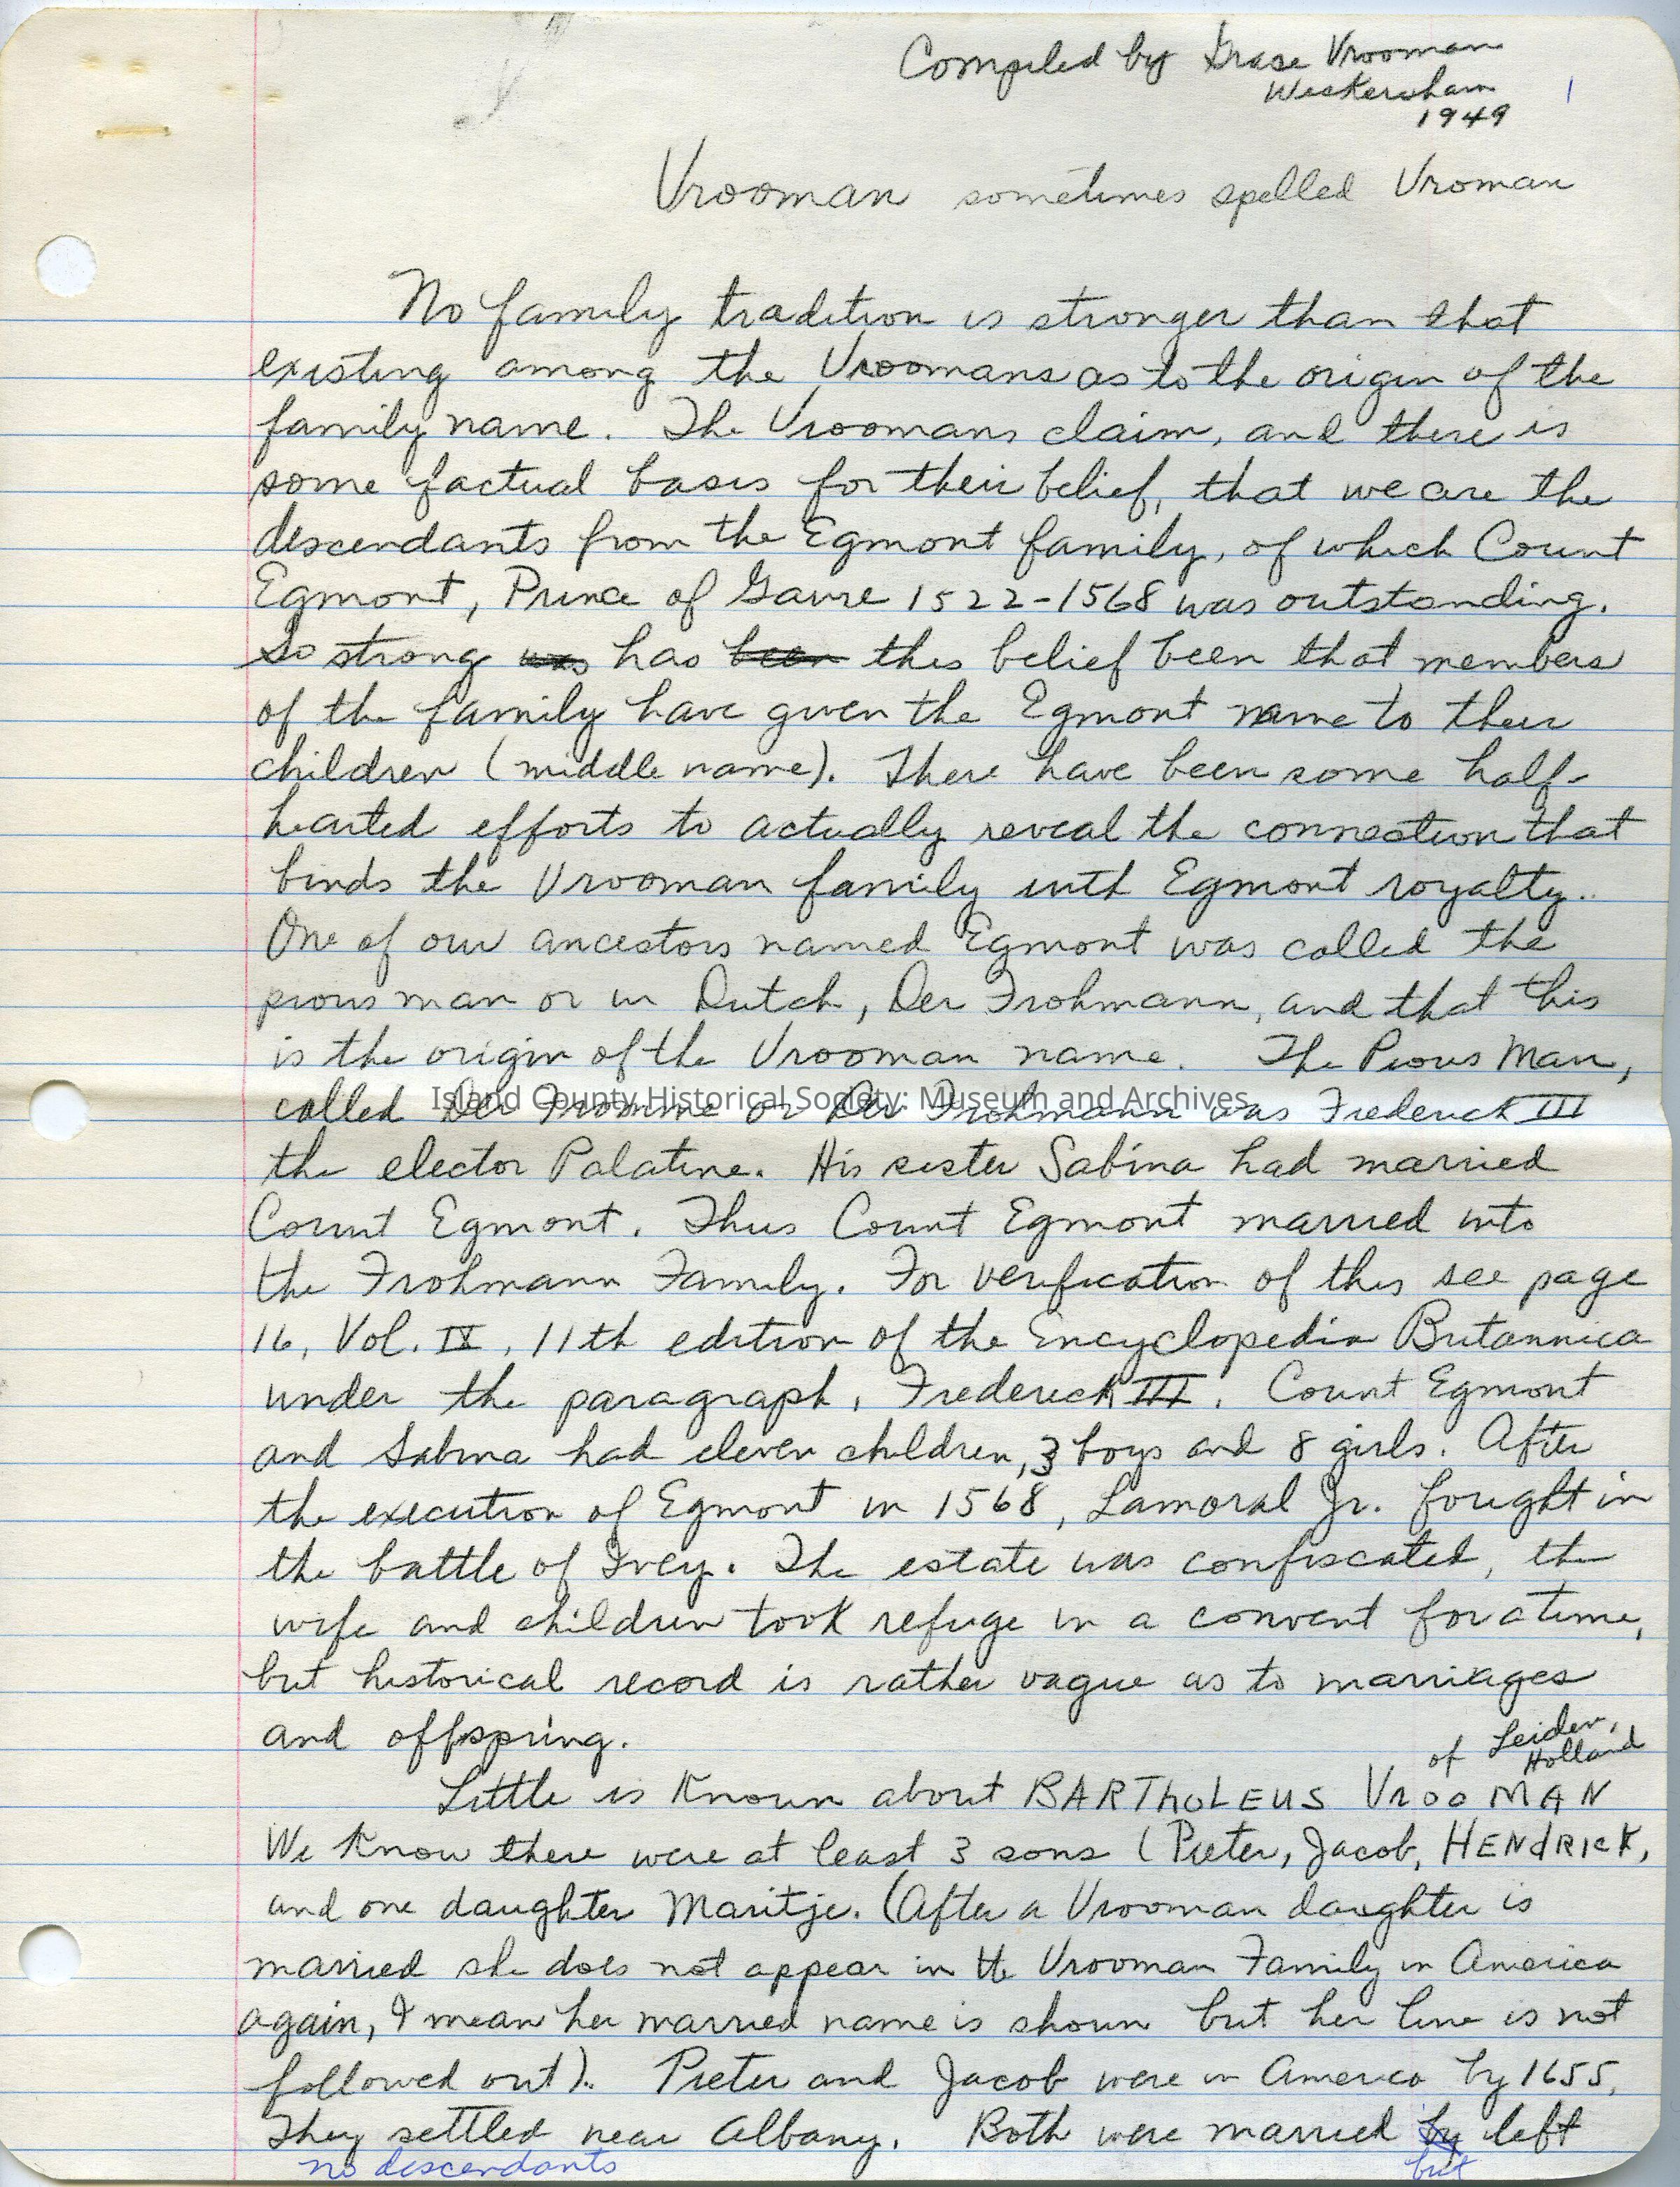 Compiled by Grase Vrooman
Wickersham
1949
1
Vrooman sometimes spelled Vroman
No family tradition is stronger than that
existing among the Vroomans as to the origin of the
family name. The Vroomans claim, and there is
some factual basis for their belief, that we are the
descendants from the Egmont family, of which Count
Egmont, Prince of Gavre 1522-1568 was outstanding.
So strong was has been this belief been that members
of the family have given the Egmont name to their
children (middle name). There have been some half-
hearted efforts to actually reveal the connection that
binds the Vrooman family with Egmont royalty..
One of our ancestors named Egmont was called the
pious man or in Dutch, Der Frohmann, and that this
is the origin of the Vrooman name. The Pious Man,
called Der Fromme or Der Frohmann was Frederick III
Island County Historical Society: Museum and Archives
the elector Palatine. His sister Sabina had married
Count Egmont. Thus Count Egmont married into
the Frohmann Family. For verification of this see page
16, Vol. IX, 11th edition of the Encyclopedia Britannica
under the paragraph, Frederick III. Count Egmont
and Sabina had eleven children, 3 boys and 8 girls. After
the execution of Egmont in 1568, Lamoral Jr. fought in
the battle of Ivey. The estate was confiscated, the
wife and children took refuge in a convent for a time,
but historical record is rather vague as to marriages
and offspring.
of Leiden,
Holland
Little is known about BARTHOLEUS VrooMAN
We know there were at least 3 sons (Pieter, Jacob, HENdRICK,
and one daughter Maritje. (After a Vrooman daughter is
married she does not appear in the Vrooman Family in America
again, I mean her married name is shown but her line is not
followed out). Pieter and Jacob were in America by 1655.
They settled near Albany. Both were married by left
no descendants but